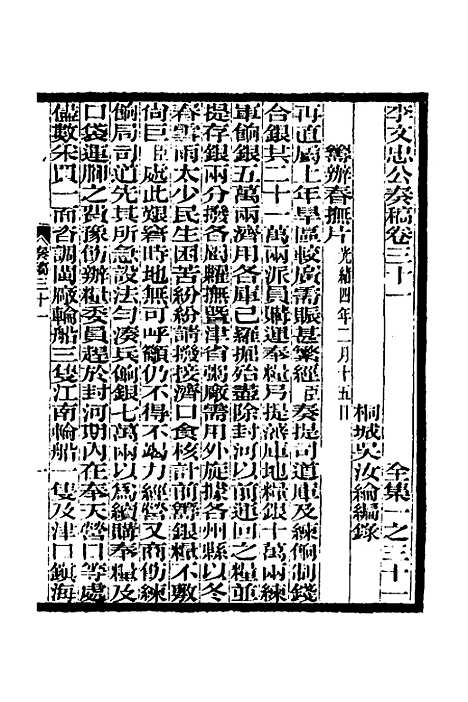 李文忠公奏稿卷三十一　全集一之三十一
桐城吳汝綸編錄
籌辦春撫片　光緒四年二月十五日
再直屬上年旱區較廣需賑甚繁經臣奏提司道庫及練餉制錢
合銀共二十一萬兩派員購運奉糧另提藩庫地糧銀十萬兩練
軍餉銀五萬兩濟用各庫已羅掘殆盡除封河以前運回之糧並
提存銀兩分撥各屬糶撫暨津省粥廠需用外旋據各州縣以冬
春雪雨太少民生困苦紛紛請撥接濟口食核計前籌銀糧不敷
尚巨臣處此艱窘時地無可呼籲仍不得不竭力經營又商飭練
餉局司道先其所急設法勻湊兵餉銀七萬兩以爲續購奉糧及
口袋運腳之費豫飭辦糧委員趕於封河期內在奉天營口等處
儘數采買一面咨調閩廠輪船三隻江南輪船一隻及津口鎮海
奏稿三十一　一